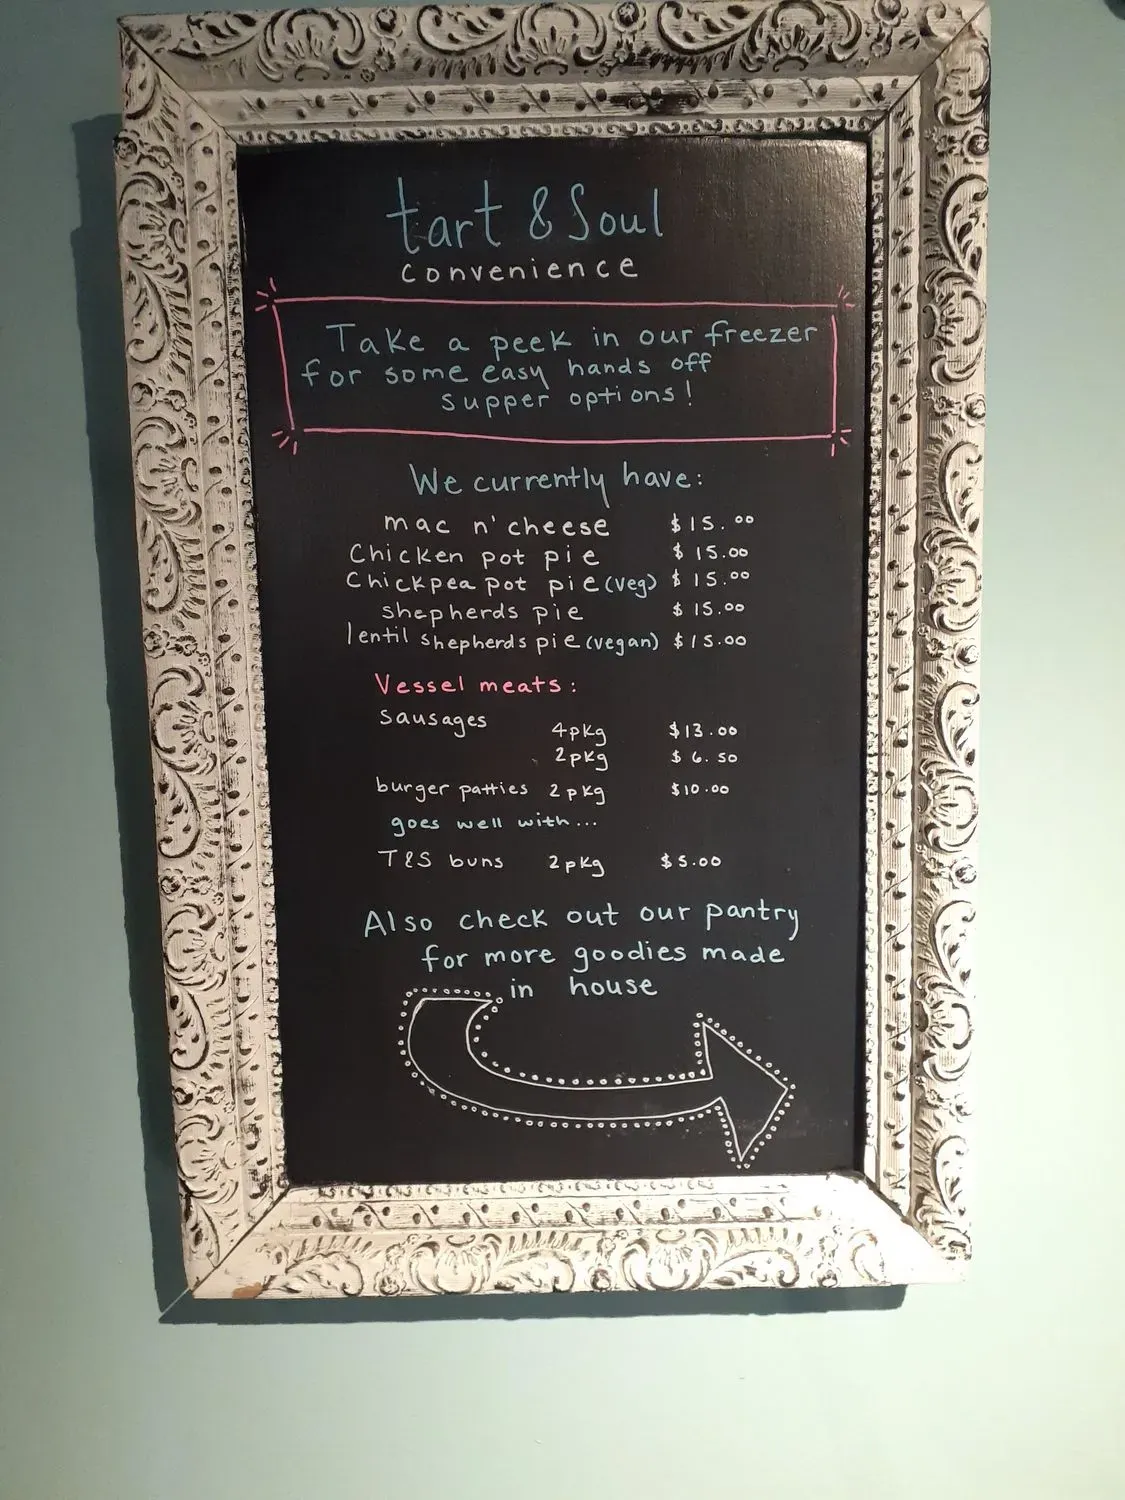 tart & Soul
convenience
Take a peek in our freezer
for some easy hands off
supper options!
We currently have:
mac n' cheese $15.00
Chicken pot pie $15.00
Chickpea pot pie (veg) $15.00
shepherds pie $15.00
lentil shepherds pie (vegan) $15.00
Vessel meats:
sausages 4pkg $13.00
2pkg $6.50
burger patties 2pkg $10.00
goes well with...
T&S buns 2pkg $5.00
Also check out our pantry
for more goodies made
in house